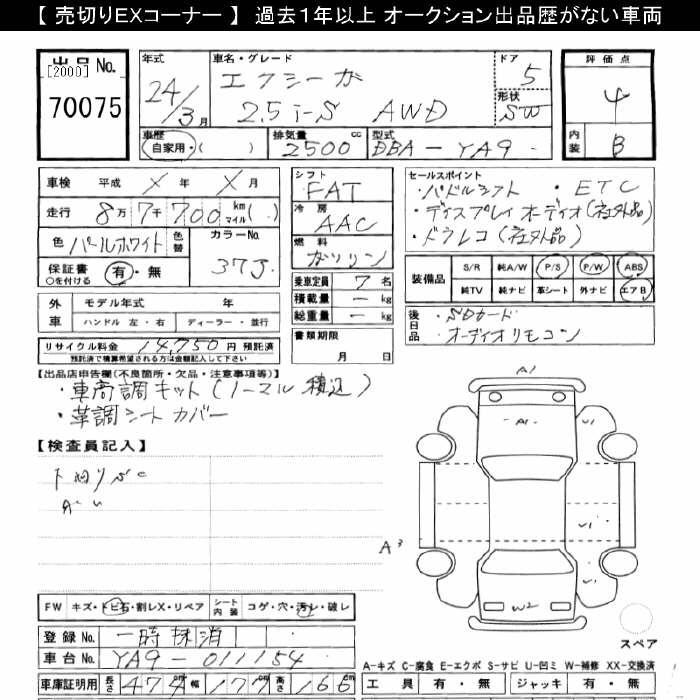 【 売切りEXコーナー 】 過去1年以上 オークション出品歴がない車両
出品 No.
[2000]
70075
年式
24/3月
車名・グレード
エクシーガ
2.5 i-S AWD
ドア
5
形状
SW
評価点
4
内装
B
車歴
自家用・( )
排気量 cc
2500
型式
DBA - YA9
車検 平成 X 年 X 月
走行 8万 7千 700 km マイル( )
色 パールホワイト 色替
カラーNo.
37J
保証書 ○を付ける 有・無
シフト
FAT
冷房
AAC
燃料
ガソリン
乗車定員 7 名
積載量 ー kg
総重量 ー kg
書類期限
月 日
セールスポイント
・パドルシフト ・ETC
・ディスプレイ オーディオ(社外品)
・ドラレコ(社外品)
装備品
S/R 純A/W P/S P/W ABS
純TV 純ナビ 革シート 外ナビ エアB
後日品
・SDカード
・オーディオリモコン
外車
モデル年式 年
ハンドル 左・右 ディーラー・並行
リサイクル料金 14,750 円 預託済
預託済で積算希望される方は金額記入して下さい
【出品店申告欄(不良箇所・欠品・注意事項等)】
・車高調キット(ノーマル積込)
・革調シートカバー
【検査員記入】
A1
A1
U1
U1
A3
U1
W2
FW キズ・トビ石・割レX・リペア
シート内装 コゲ・穴・汚レ・破レ
登録 No. 一時抹消
車台 No. YA9 - 011154
車庫証明用 長さ 474 幅 177 高さ 166
スペア
A-キズ C-腐食 E-エクボ S-サビ U-凹ミ W-補修 XX-交換済
工具 有・無 ジャッキ 有・無